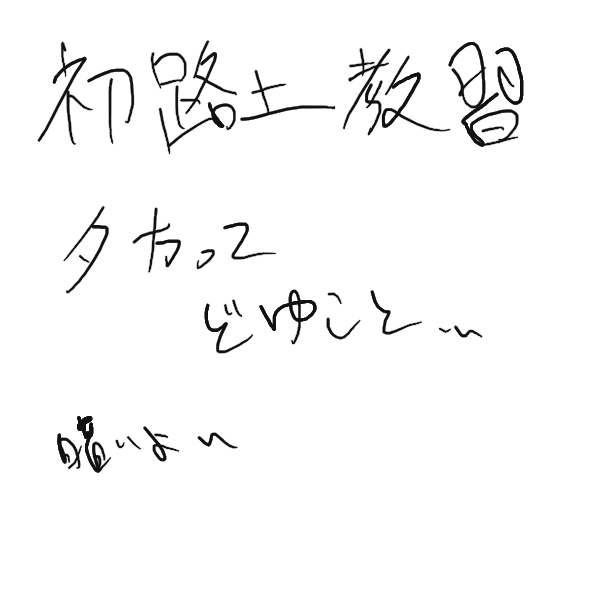 初路上教習
夕方って
どゆこと…
暗いよ〜